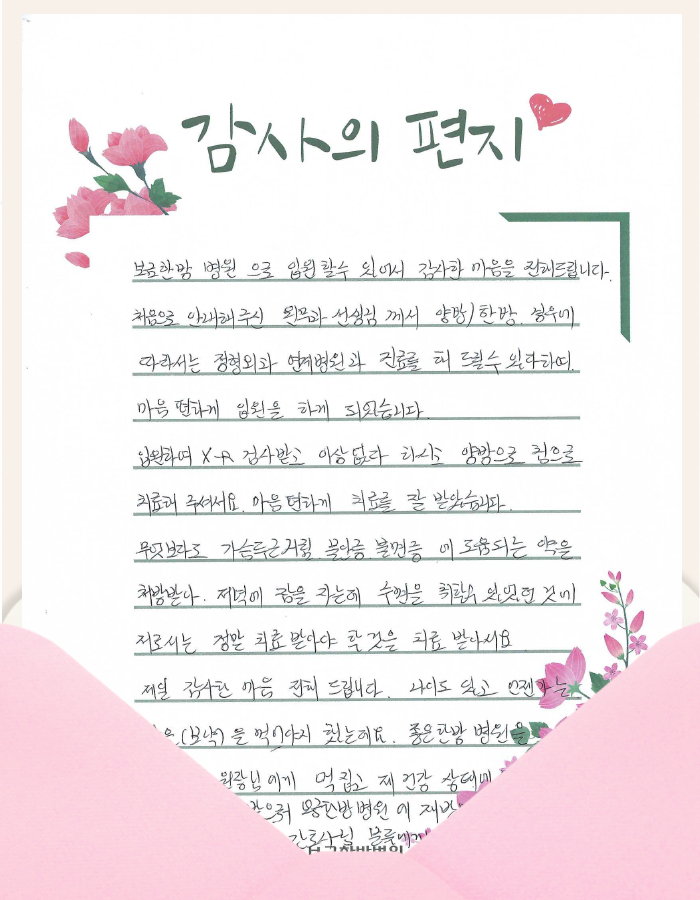 감사의 편지
보금한방 병원 으로 입원 할수 있어서 감사한 마음을 전해드립니다.
처음으로 안내해주신 원무과 선생님 께서 양방/한방. 경우에
따라서는 정형외과 연계병원과 진료를 해 드릴수 있다하여.
마음 편하게 입원을 하게 되었습니다.
입원하여 X-ray 검사받고 이상 없다 하시고 양방으로 침으로
치료해 주셔서요. 마음편하게 치료를 잘 받았습니다.
무엇보다도 가슴두근거림 불안증 불면증 에 도움되는 약을
처방받아. 저녁에 잠을 자는데 수면을 취할수 있었던 것이
저로서는 정말 치료 받아야 할 것을 치료 받아서요
제일 감사한 마음 전해 드립니다. 나이도 있고 언젠가는
(보약)을 먹어야지 했는데요. 좋은한방 병원을
원장님 에게 제 건강 상태에
한방병원 에
간호사님 분들에게